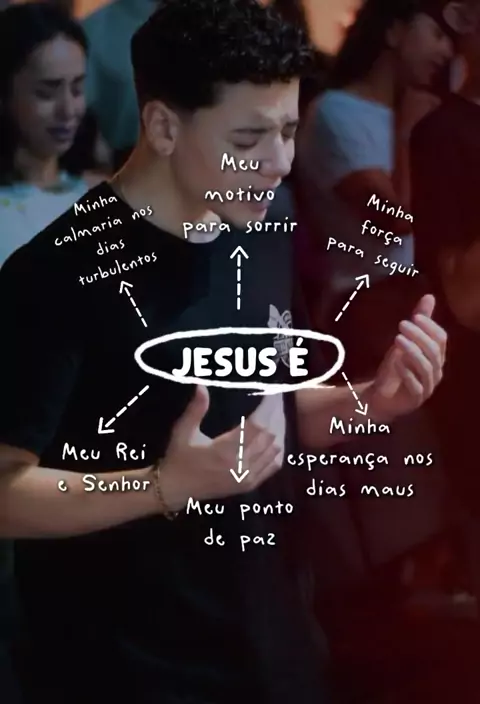 Minha
calmaria nos
dias
turbulentos
Meu
motivo
para sorrir
Minha
força
para seguir
JESUS É
Meu Rei
e Senhor
Meu ponto
de paz
Minha
esperança nos
dias maus